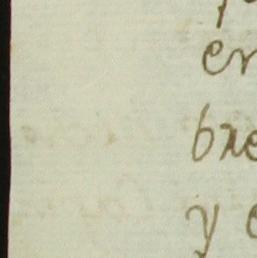 en
bre
y e